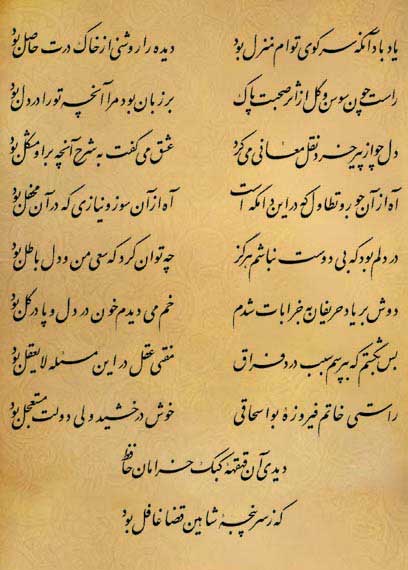 یاد باد آنکه سر کوی توام منزل بود دیده را روشنی از خاک درت حاصل بود
راست چون سوسن و گل از اثر صحبت پاک بر زبان بود مرا آنچه تو را در دل بود
دل چو از پیر خرد نقل معانی می کرد عشق می گفت به شرح آنچه بر او مشکل بود
آه از آن جور و تطاول که در این دامگه است آه از آن سوز و نیازی که در آن محفل بود
در دلم بود که بی دوست نباشم هرگز چه توان کرد که سعی من و دل باطل بود
دوش بر یاد حریفان به خرابات شدم خم می دیدم خون در دل و پا در گل بود
بس بگشتم که بپرسم سبب درد فراق مفتی عقل در این مسئله لایعقل بود
راستی خاتم فیروزهٔ بواسحاقی خوش درخشید ولی دولت مستعجل بود
دیدی آن قهقههٔ کبک خرامان حافظ
که ز سرپنجهٔ شاهین قضا غافل بود